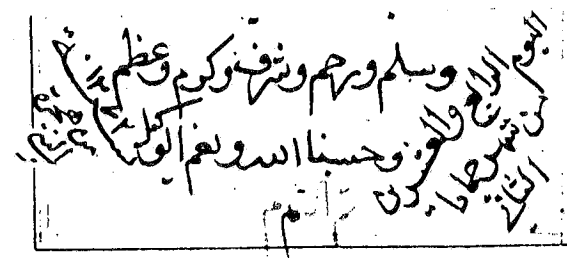 وسلم ورحم وشرف وكرم وعظم
وحسبنا الله ونعم الوكيل
اليوم الرابع والعشرين
من شهر جمادى
الثاني